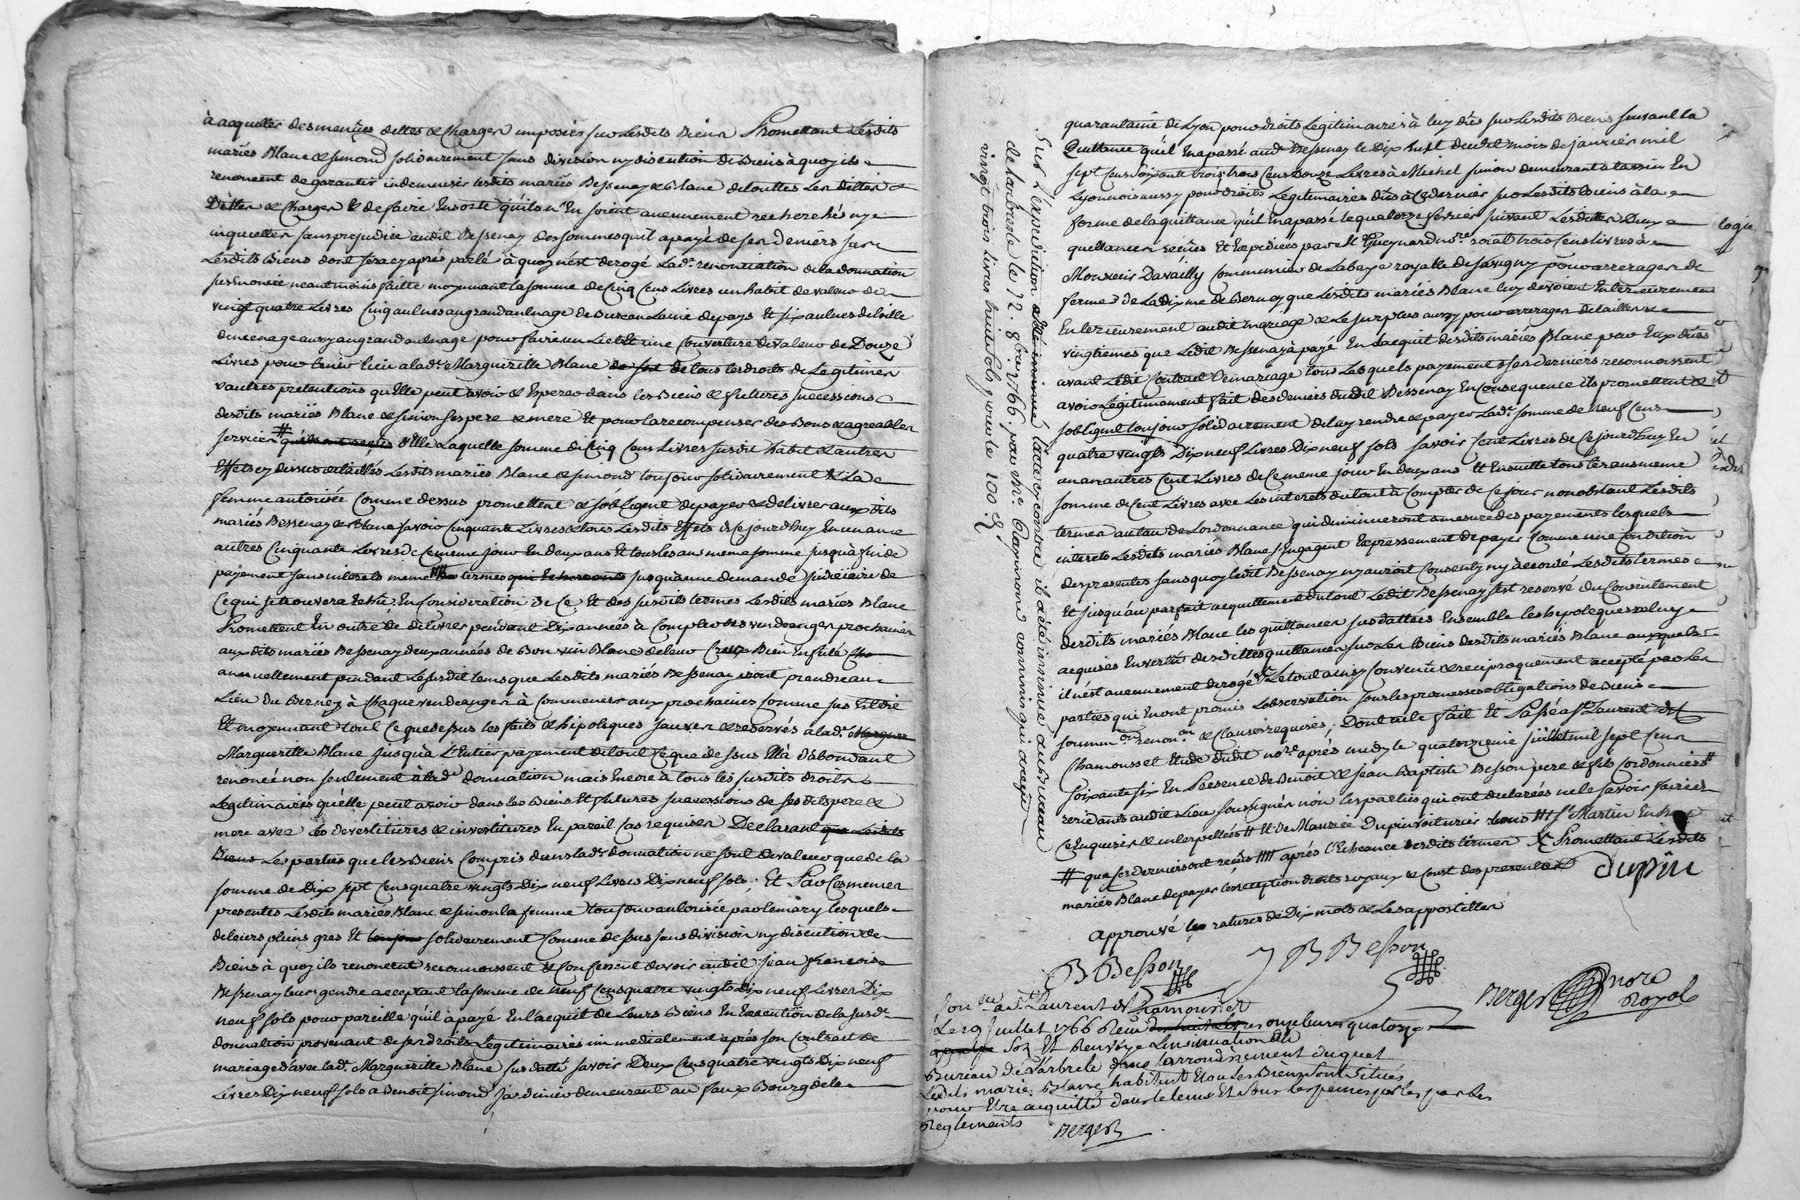 à acquitter desmêmes dettes & Charges imposées sur Lesdits Biens Promettant Lesdits
mariés Blanc & simond solidairement sans division ny discution de Biens à quoy ils
renoncent de garantir indemniser lesdits mariés Bessenay & Blanc de touttes Les dittes
Dettes & Charges & de faire Ensorte qu'ils n'En soient aucunement recherchés ny
inquiettés sans prejudice audit Bessenay des sommes qu'il a payé de ses deniers sur
Lesdits Biens dont sera cy après parlé à quoy n'est derogé La de renonciation de la donnation
susénoncée neantmoins faitte moyennant la somme de Cinq Cens Livres un habit de valeur de
vingt quatre Livres Cinq aulnes au grand aulnage de pays Et six aulnes de toille
de menage aussy au grand aulnage pour faire un Lict Et une Couverture de valeur de Douze
Livres pour tenir Lieu a lad. Margueritte Blanc de tous les droits de Legitimes
& autres pretentions qu'Elle peut avoir & Esperer dans les Biens & futures successions
desdits mariés Blanc & simon ses pere & mere Et pour la recompenser des Bons & agreables
services # Laquelle somme de Cinq Cens Livres susdit habit & autres
Effets cy dessus detaillés Lesdits mariés Blanc & simond toujour solidairement & La
femme autorisée Comme dessus promettent & s'obligent de payer & delivrer auxdits
mariés Bessenay & Blanc savoir Cinquante Livres & tous Lesdits Effets de ce jourd'huy En un an
autres Cinquante Livres de Ce meme jour En deux ans Et tous les ans meme somme jusqu'à fin de
payement sans interets meme termes jusqu'a une demande judiciaire de
Ce qui se trouvera Echu, En Consideration de Ce Et des susdits termes Lesdits mariés Blanc
Promettent En outre de delivrer pendant Dix années à Compter des vendanges prochaines
aux dits mariés Bessenay deux annees de Bon vin Blanc de leur Creux Bien Enfuté
annuellement pendant Le susdit tems que Lesdits mariés Bessenay iront prendre au
Lieu du Bernez à Chaque vendanges à Commencer aux prochaines Comme sus Est dit
Et moyennant tout Ce que dessus les faits & hipoteques sauvés & reservés à lad.
Margueritte Blanc jusqu'à L'Entier payement de tout Ce que dessus Ellà d'abondant
renoncé non seulement a lad. donnation mais Encore à tous les susdits droits
Legitimaires qu'elle peut avoir dans les Biens Et futures successions de ses dits pere &
mere avec les devestitures & investitures En pareil cas requises Declarant
Les parties que les Biens Compris dans lad. donnation ne sont de valeur que de la
somme de Dix sept Cens quatre vingts Dix neuf Livres Dix neuf sols; Et Par Ces memes
presentes Lesdits mariés Blanc & simon la femme toujour autorisée par le mary lesquels
de leurs pleins gres Et solidairement Comme dessus sans division ny discution de
Biens à quoy ils renoncent reconnoissent & Confessent devoir audit jean francois
Bessenay leur gendre acceptant la somme de neuf Cens quatre vingts Dix neuf Livres Dix
neuf sols pour pareille qu'il a payé En l'acquit de Leurs Biens En Execution de la susde.
donnation provenant de ses droits Legitimaires immediatement après son Contract de
mariage d'avec lad. Margueritte Blanc susdatté savoir Deux Cens quatre vingts Dix neuf
Livres Dix neuf sols a Benoit simond jardinier demeurant au faux Bourg de la
quarantaine de Lyon pour droits Legitimaires à luy dûs sur Lesdits Biens suivant la
Quittance qu'il En a passé aud. Bessenay le Dix huit dudit mois de janvier mil
sept Cens soixante trois trois Cens Douze Livres à Michel simon demeurant a tassin En
Lyonnois aussy pour droits Legitimaires dûs à Ce dernier sur Lesdits Biens à la
forme de la quittance qu'il En a passé le quatorze fevrier suivant Lesdittes Deux
quittances recûes Et Expediées par Me Gueynard nore. royal trois Cens Livres à
Monsieur Davailly Communier de Labaye royalle de savigny pour arrerages de
ferme de La dixme de Bernay que Lesdits mariés Blanc luy devoient Entierement
Enterieurement audit mariage & Le surplus aussy pour arrerages de tailles &
vingtiemes que Ledit Bessenay à payé En Lacquit desdits mariés Blanc pour Eux dûs
avant Ledit Contrat de mariage tous Lesquels payements Ces derniers reconnoissent
avoir Légitimement fait des deniers dudit Bessenay En Consequence ils promettent &
s'obligent toujour solidairement de luy rendre & payer Lad. somme de neuf Cens
quatre vingts Dix neuf Livres Dix neuf sols savoir Cent Livres de Ce jourd'huy En
un an autres Cent Livres de Ce meme jour En deux ans Et Ensuitte tous les ans meme
somme de Cent Livres avec Les interets du tout à Compter de Ce jour nonobstant Lesdits
termes au tau de Lordonnance qui diminueront a mesure des payements lesquels
interets Lesdits mariés Blanc s'Engagent Expressement de payer Comme une Condition
des presentes sans quoy Ledit Bessenay n'y auroit Consenty ny accordé Lesdits termes
Et jusqu'au parfait acquittement du tout Ledit Bessenay s'est reservé du Consentement
desdits mariés Blanc les quittances susdattées Ensemble les hipoteques a luy
acquises En vertu desdittes quittances sur Les Biens desdits mariés Blanc auxquels
il n'est aucunement derogé Le tout ainsy Convenu & reciproquement accepté par Les
parties qui En ont promis Lobservation sous les promesses obligations de Biens
soummons. renonons. & Clauses requises; Dont acte fait Et Passé a St. Laurent de
Chamousset Etude dudit nore. après midy le quatorzieme juillet mil sept Cens
soixante six En Presence de Benoit & jean Baptiste Besson pere & fils Cordonniers
residants audit Lieu soussignés non Les parties qui ont declarées ne le savoir faire de
Ce Enquises & interpellées # Et de Maurice Dupin voiturier St. Martin En
# que ses derniers ont recûs #### après l'Echeance desdits termes X Promettant Lesdits
mariés Blanc de payer L'exception droits royaux & Coust des presentes
dupin
approuvé les ratures de Dix mots & Les appostilles
B Besson
J B Besson
Berger nore
Royal
Con lle. a St. Laurent de Chamousset
Le 19 juillet 1766 Reçu onze livres quatorze
sols Et Renvoyé Linsinuation au
Bureau de Larbrele dans larrondissement duquel
Lesdits mariés Blanc habitent Et ou Les Biens sont situés
pour Etre acquitté dans le tems Et sous les peines portées par Les
Reglements Berger
Sur L'expedition de l'acte cy contre il a été insinué au bureau
de Larbresle le 12. 8bre 1766. par Mr. commis qui a reçu
vingt trois livres huit sols, quitte 100 £